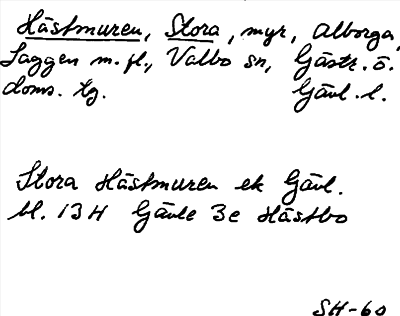 Hästmuren, Stora, myr, Alborga,
Laggen m. fl., Valbo sn, Gästr. ö.
doms. tg. Gävl. l.
Stora Hästmuren ek Gävl.
bl. 13H Gävle 3e Hästbo
SH-60